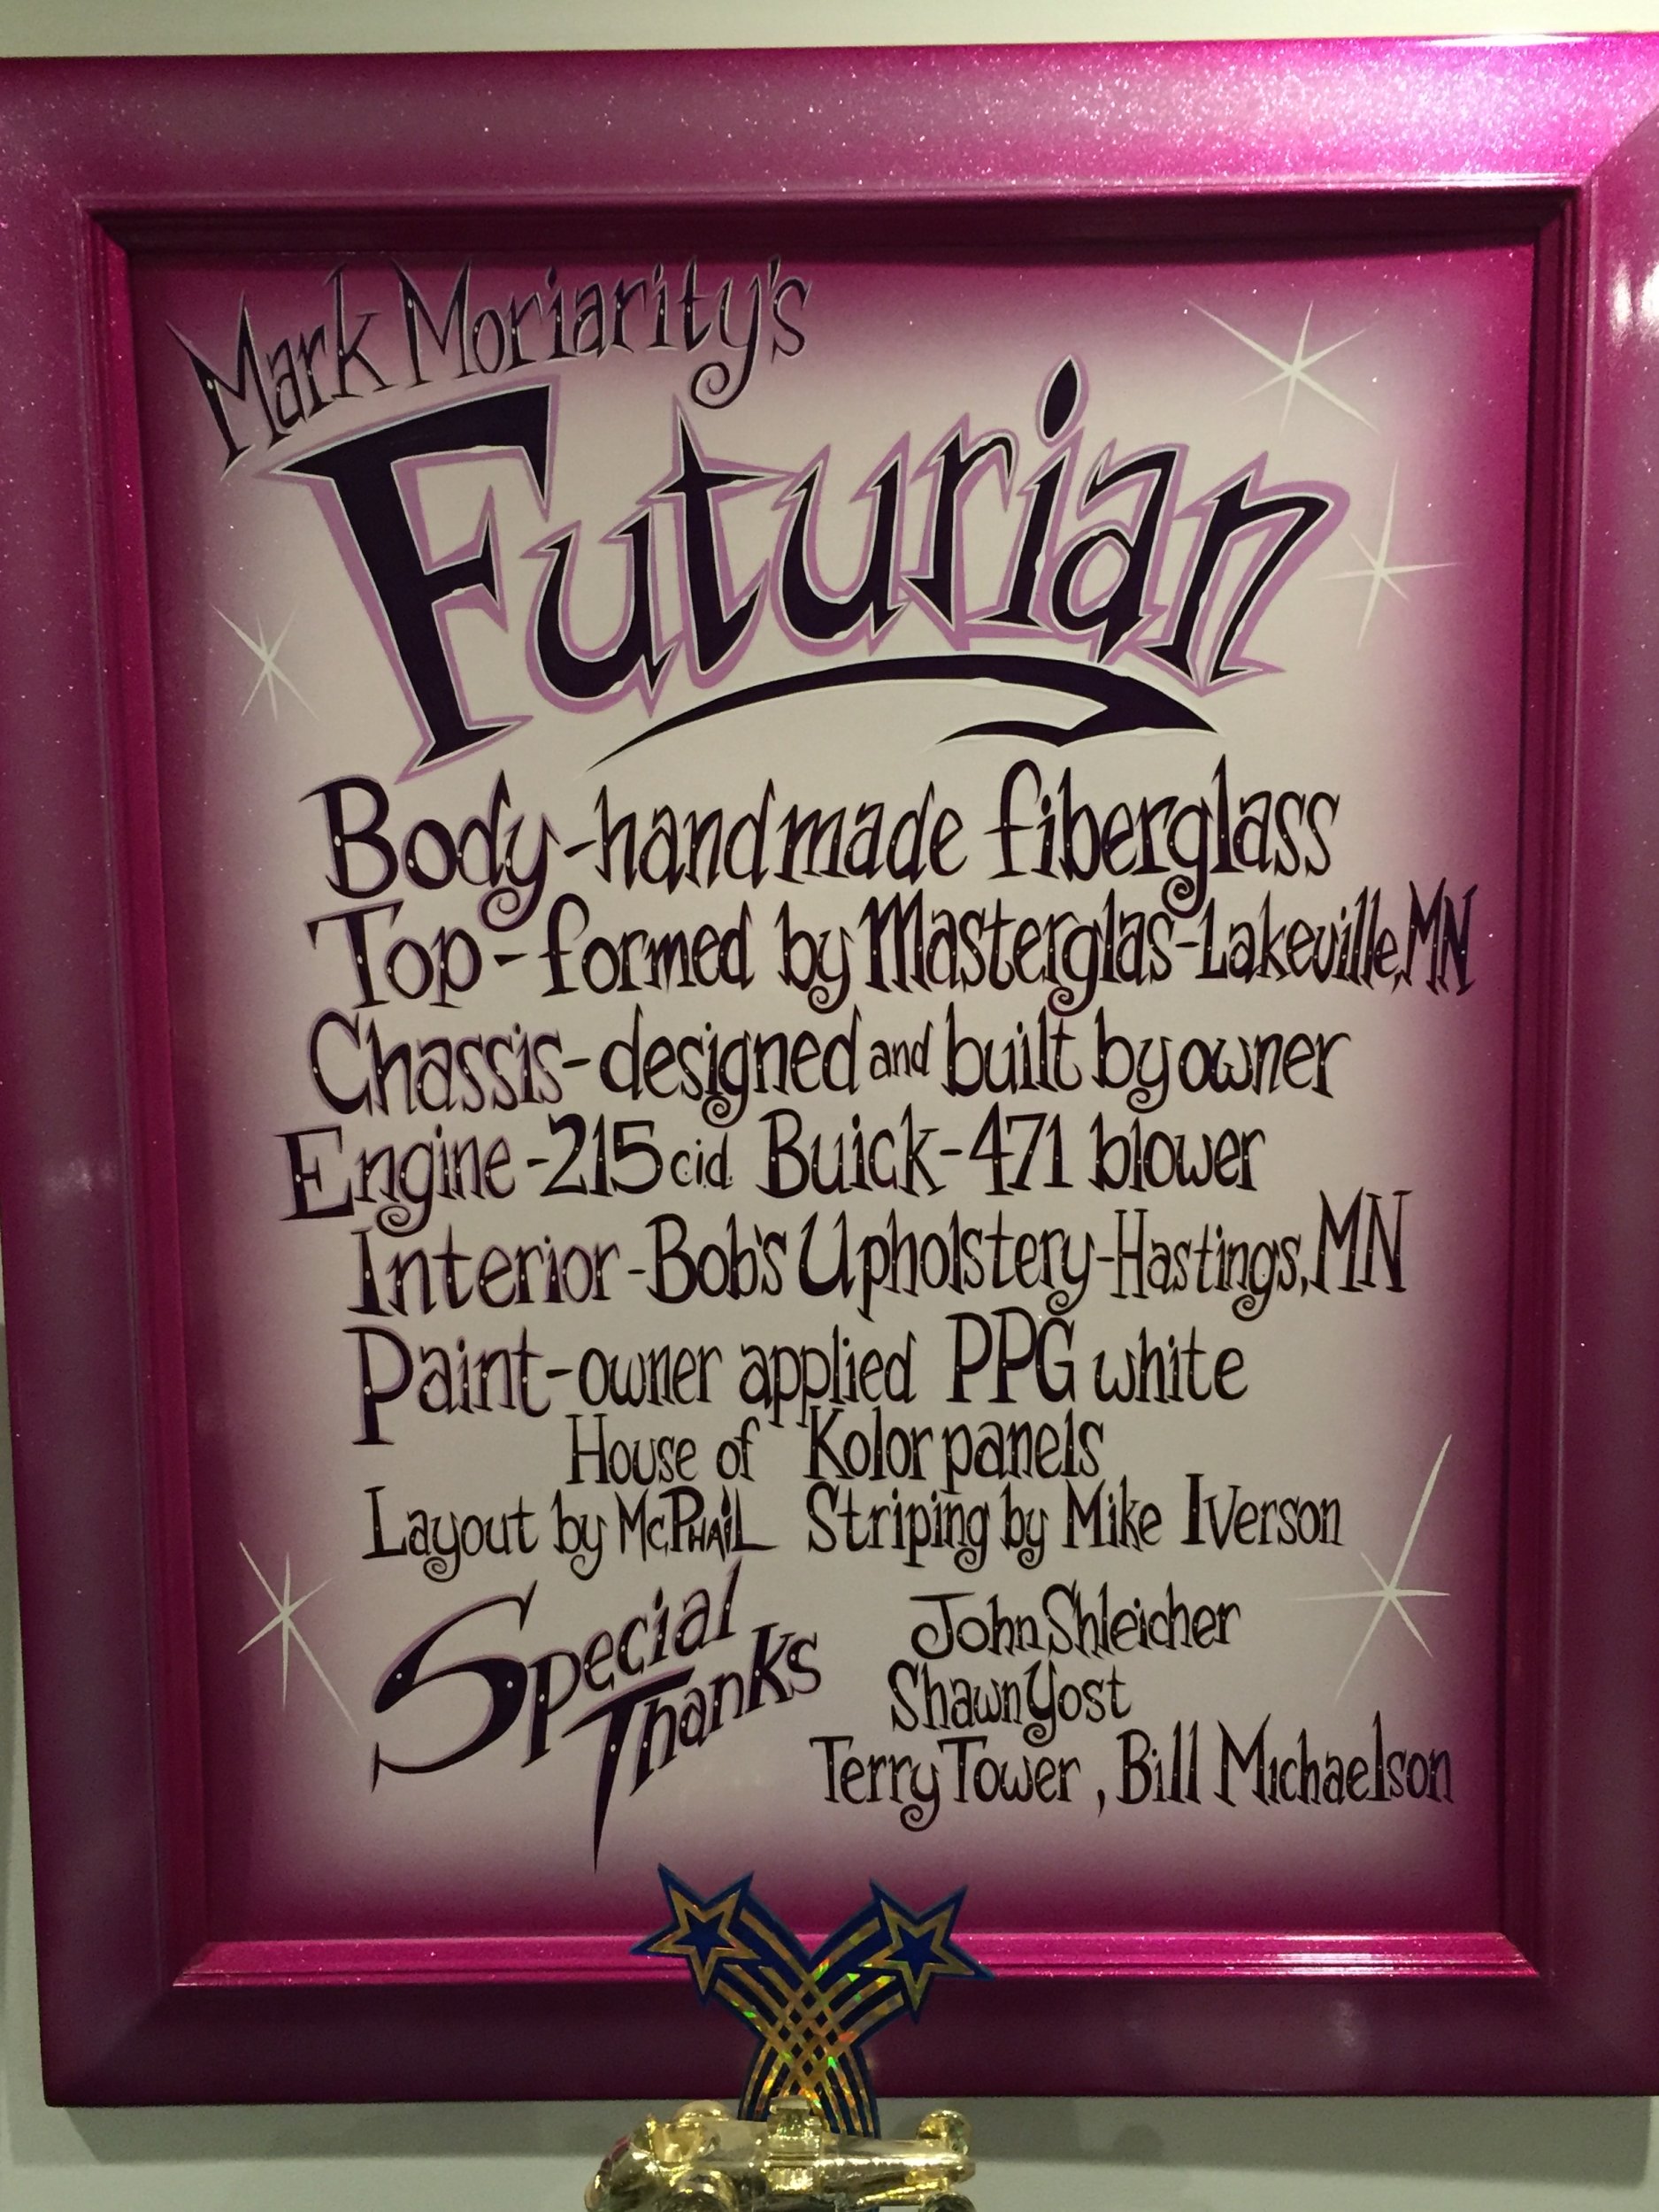 Mark Moriarity's
Futurian
Body-handmade fiberglass
Top-formed by Masterglas-Lakeville,MN
Chassis-designed and built by owner
Engine-215 c.i.d. Buick-471 blower
Interior-Bob's Upholstery-Hastings,MN
Paint-owner applied PPG white
House of Kolor panels
Layout by McPHAiL Striping by Mike Iverson
Special Thanks
John Shleicher
Shawn Yost
Terry Tower, Bill Michaelson